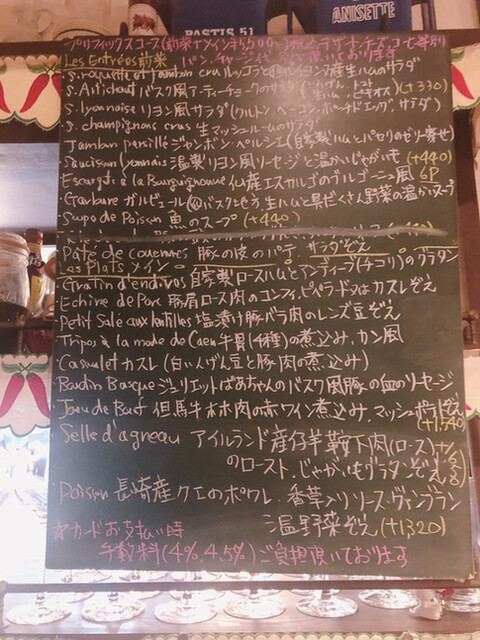 PASTIS 51
ANISETTE
プリフィックスコース(前菜+メイン
Les Entrées 前菜 パン、チャージ代
S. roquette et jambon cru ルッコラと
S. Artichaut バスク風アーティチョークのサラダ (+330)
S. lyonnaise リヨン風サラダ(クルトン ベーコン ポーチドエッグ サラダ)
S. champignons crus 生マッシュルームのサラダ
Jambon persillé ジャンボン・ペルシエ(自家製ハムとパセリのゼリー寄せ)
Saucisson lyonnais 温製リヨン風ソーセージと温かいじゃがいも (+440)
Escargot à la Bourguignonne 仏産エスカルゴのブルゴーニュ風 6P
Garbure ガルビュール(バスク 生ハムと 野菜の温かいスープ
Soupe de Poisson 魚のスープ (+440)
Pâté de couennes 豚の皮のパテ、サラダぞえ
Les Plats メイン
・Gratin d'endives 自家製ロースハムとアンディーブ(チコリ)のグラタン
・Echine de Porc 豚肩ロース肉のコンフィ、ピペラド又はカスレぞえ
・Petit Salé aux lentilles 塩漬け豚バラ肉のレンズ豆ぞえ
・Tripes à la mode de Caen 牛胃(4種)の煮込み、カン風
・Cassoulet カスレ(白いんげん豆と豚肉の煮込み)
・Boudin Basque ジュリエットばあちゃんのバスク風豚の血のソーセージ
・Joue de Bœuf 但馬牛ホホ肉の赤ワイン煮込み、マッシュポテトぞえ (+1540)
Selle d'agneau アイルランド産仔羊鞍下肉(ロース)
のロースト、じゃがいもグラタンぞえ
・Poisson 長崎産クエのポワレ 香草入りソース・ヴァンブラン
温野菜ぞえ (+1320)
☆カードお支払い時
手数料(4%、4.5%)ご負担頂いております